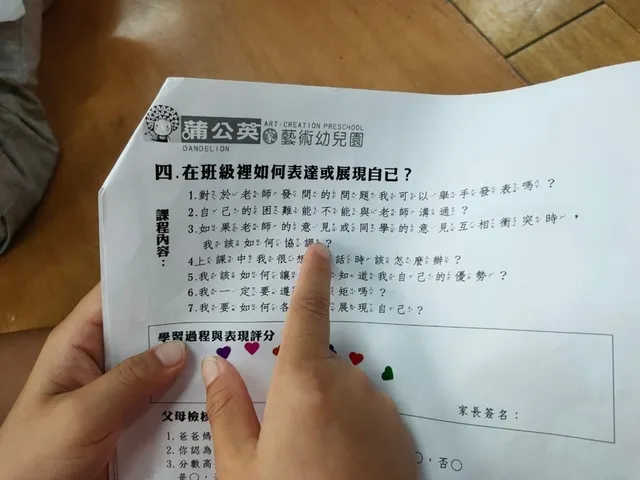 ART-CREATION PRESCHOOL
蒲公英家藝術幼兒園
DANDELION
四.在班級裡如何表達或展現自已?
課程內容:
1.對於老師發問的問題我可以舉手發表嗎?
2.自己的困難能不能與老師溝通?
3.如果老師的意見或同學的意見互相衝突時,
我該如何協調?
4上課中我很想 話時該怎麼辦?
5.我該如何讓 知道我自己的優勢?
6.我一定要遵 矩嗎?
7.我要如何各 展現自己?
學習過程與表現評分
家長簽名:
父母檢核
1.爸爸媽
2.你認為 ○,否○
3.分數高
是○,